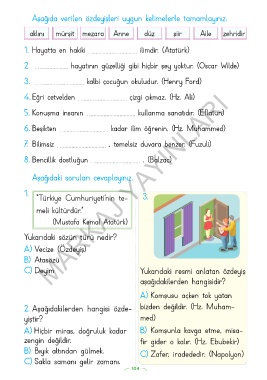 Aşağıda verilen özdeyişleri uygun kelimelerle tamamlayınız.
aklını mürşit mezara Anne düz şiir Aile zehridir
1. Hayatta en hakiki .................... ilimdir. (Atatürk)
2. .................... hayatının güzelliği gibi hiçbir şey yoktur. (Oscar Wilde)
3. .................... kalbi çocuğun okuludur. (Henry Ford)
4. Eğri cetvelden .................... çizgi çıkmaz. (Hz. Ali)
5. Konuşma insanın .................... kullanma sanatıdır. (Eflatun)
6. Beşikten .................... kadar ilim öğrenin. (Hz. Muhammed)
7. Bilimsiz .................... , temelsiz duvara benzer. (Fuzuli)
8. Bencillik dostluğun .................... . (Balzac)
Aşağıdaki soruları cevaplayınız.
1.
"Türkiye Cumhuriyeti'nin te-
meli kültürdür."
(Mustafa Kemal Atatürk)
Yukarıdaki sözün türü nedir?
A) Vecize (Özdeyiş)
B) Atasözü
C) Deyim
2. Aşağıdakilerden hangisi özde-
yiştir?
A) Hiçbir miras, doğruluk kadar
zengin değildir.
B) Bıyık altından gülmek.
C) Sakla samanı gelir zamanı.
3.
Yukarıdaki resmi anlatan özdeyiş
aşağıdakilerden hangisidir?
A) Komşusu açken tok yatan
bizden değildir. (Hz. Muham-
med)
B) Komşunla kavga etme, misa-
fir gider o kalır. (Hz. Ebubekir)
C) Zafer, iradededir. (Napolyon)
104
MARKAJ YAYINLARI